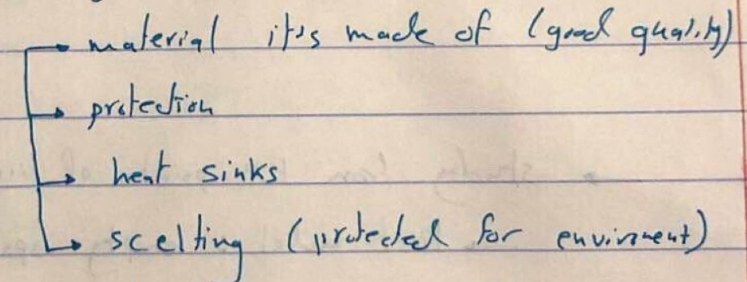 → material it's made of (good quality)
→ protection
→ heat sinks
→ scelting (protected for enviroment)